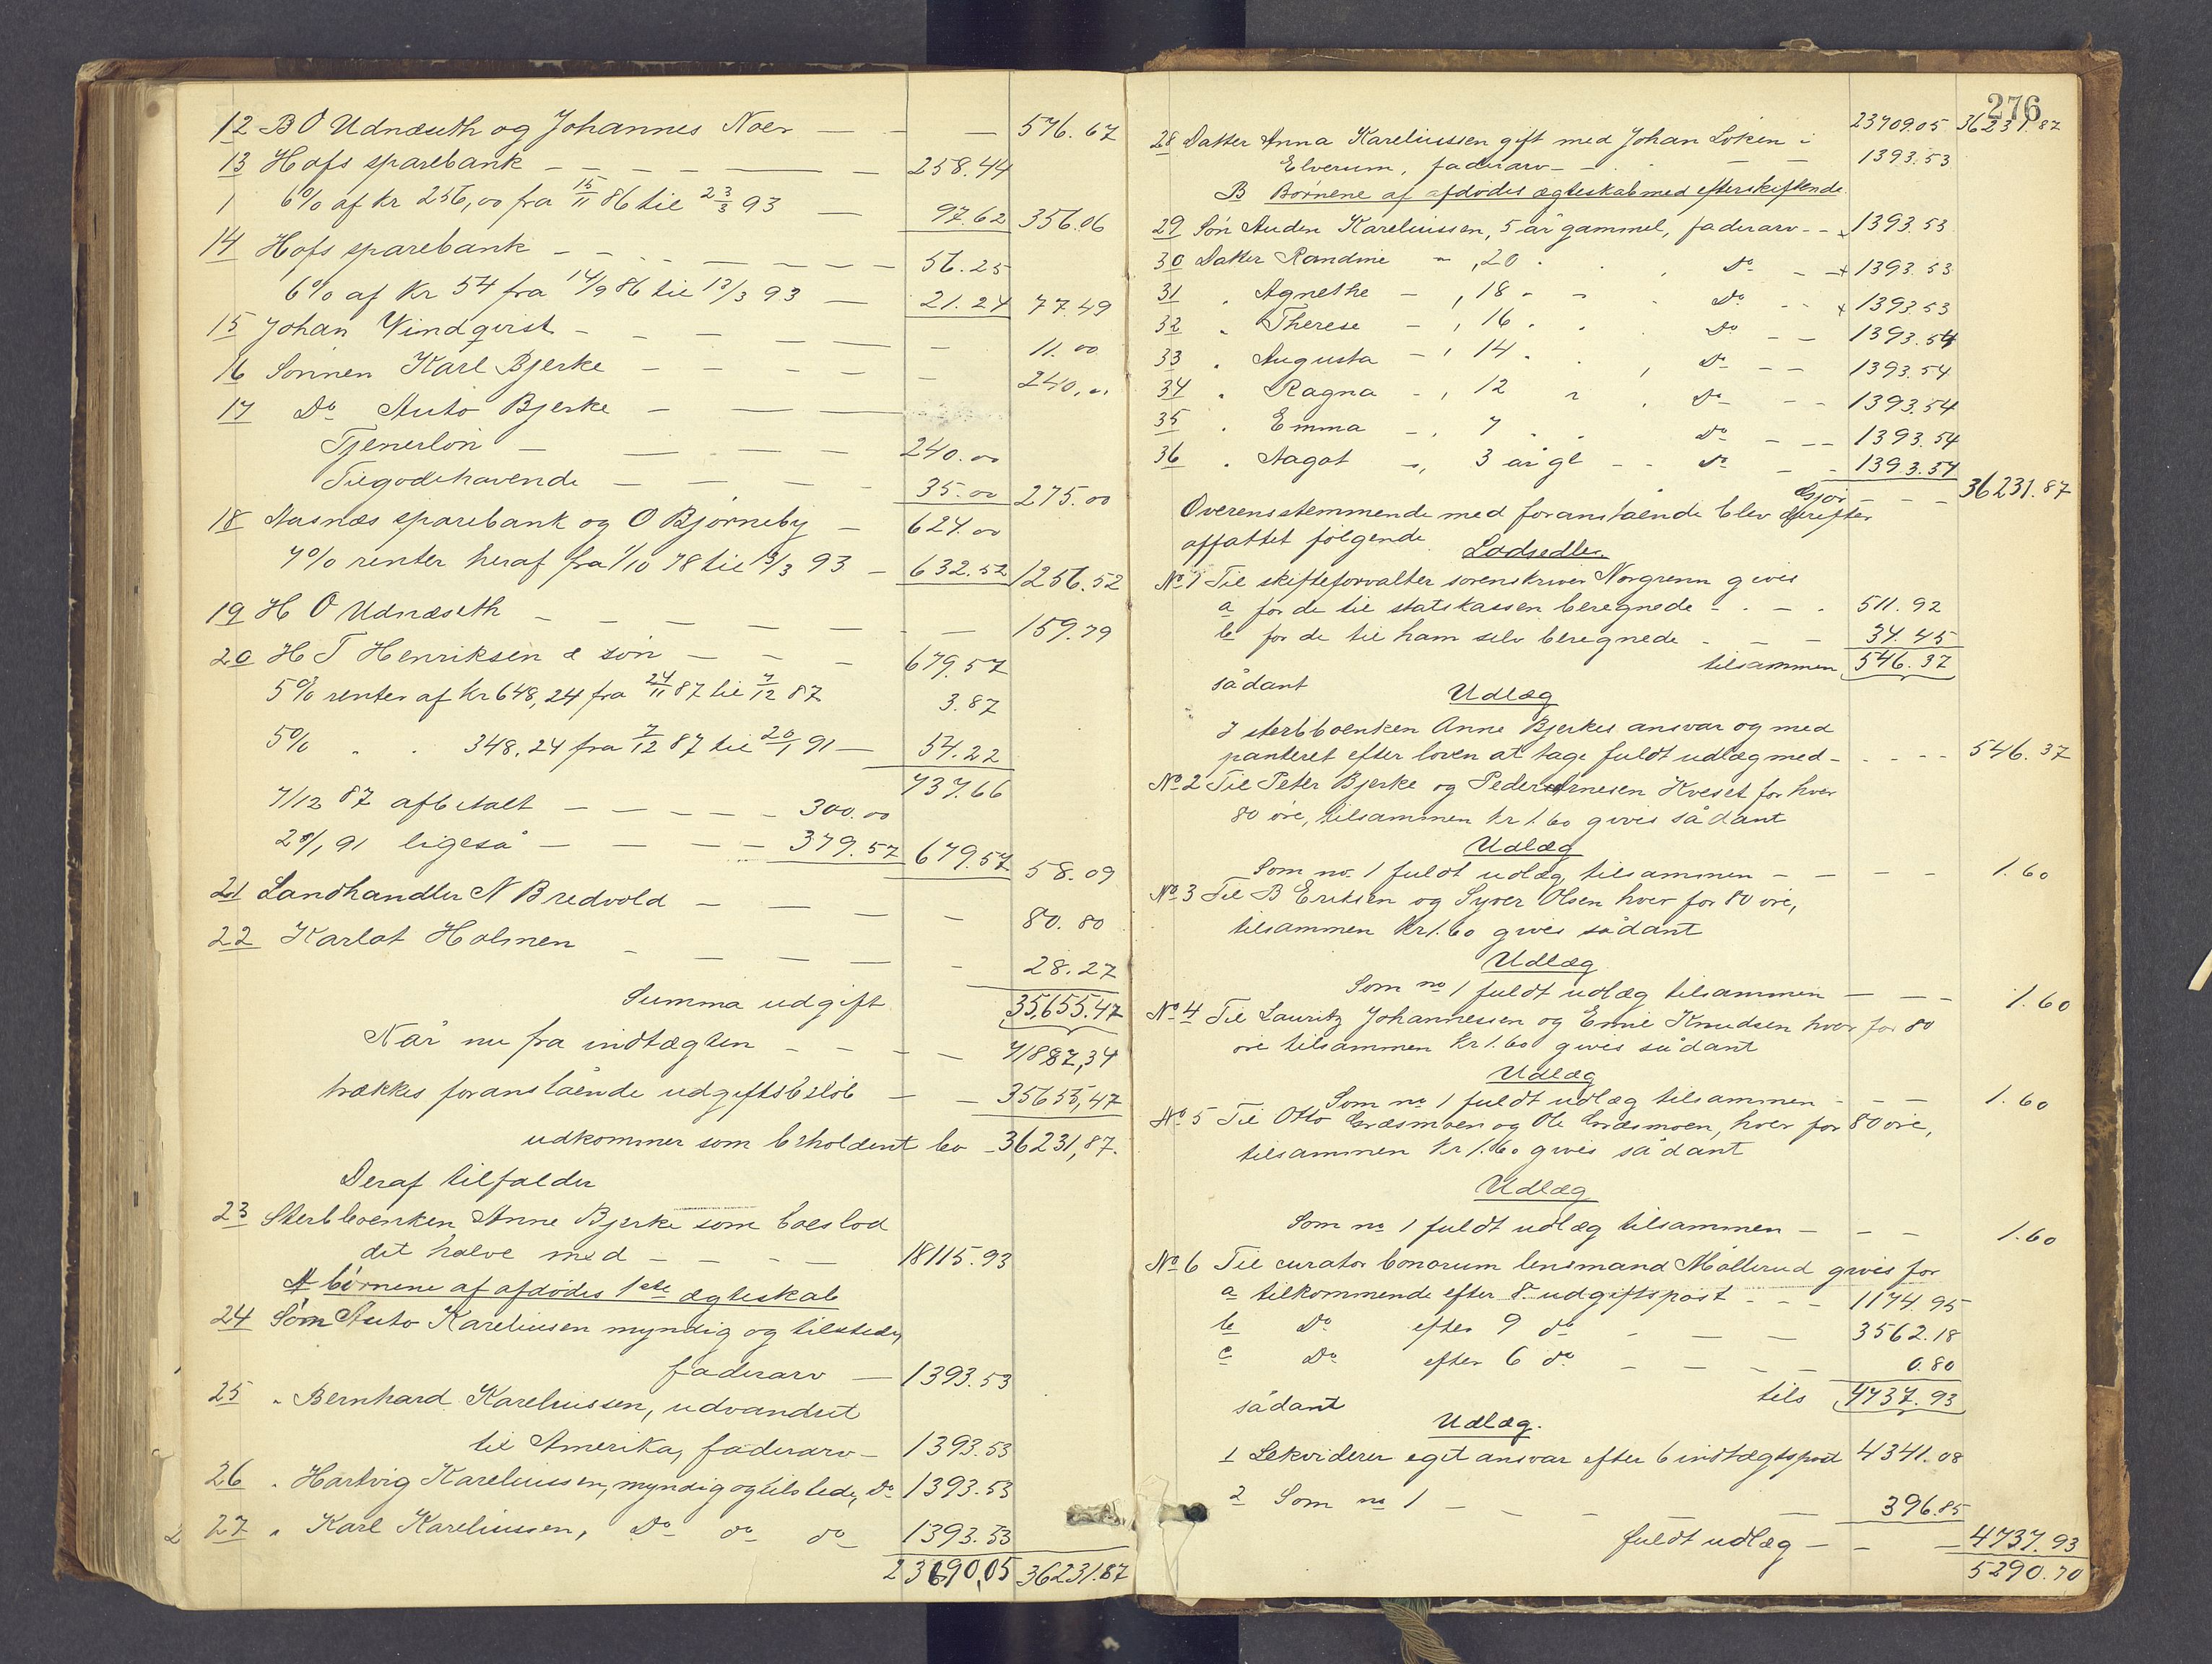 12 B O Udnæseth og Johannes Noer — — — 576.67
13 Hofs sparebank — — — — — 258.44
6% af kr 256,00 fra 15/11 86 til 23/3 93 — 97.62 356.06
14 Hofs sparebank — — — — — — 56.25
6% af kr 54 fra 14/9 86 til 13/3 93 — 21.24 77.49
15 Johan Vindqvist — — — — — 11.00
16 Sønnen Karl Bjerke — — — — — 240,„
17 Do Auto Bjerke — — — —
Tjenerløn — — — — 240.00
Tilgodehavende — — — — 35.00 275.00
18 Aasnæs sparebank og O Bjørneby — 624.00
7% renter heraf fra 1/10 78 til 13/3 93 — 632.52 1256.52
19 H O Udnæseth — — — — — — 159.79
20 H T Henriksen & søn — — — 679.57
5% renter af kr 648,24 fra 24/11 87 til 7/12 87 3.87
5% „ „ 348.24 fra 7/12 87 til 20/1 91 — 54.22
737.66
7/12 87 afbetalt — — — — 300.00
20/1 91 ligeså — — — — 379.57 679.57 58.09
21 Landhandler N Bredvold — — — — 80.80
22 Karlot Holmen — — — — — 28.27
Summa udgift 35,655.47
Når nu fra indtægten — — — — 71887,34
trækkes foranstående udgiftsbeløb — — 35655,47
udkommer som beholdent bo — 36231,87.
Deraf tilfalder
23 Sterbboenken Anne Bjerke som boeslod
det halve med — — — — 18115.93
A børnene af afdødes 1ste ægteskab
24 Søn Auto Kareliusen myndig og tilstede,
faderarv — 1393.53
25 „ Bernhard Kareliussen, udvandret
til Amerika, faderarv — 1393.53
26 „ Hartvig Kareliussen, myndig og tilstede, Do 1393.53
27 „ Karl Kareliussen, Do do do 1393.53
23690,05 36231.87
276
23709.05 36231.87
28 Datter Anna Kareliussen gift med Johan Løken i
Elverum, faderarv — — — — 1393.53
B Børnene af afdødes ægteskab med efterskiftende.
29 Søn Auden Kareliussen, 5 år gammel, faderarv — — 1393.53
30 Datter Randine — , 20 „ „ , Do — — 1393.53
31 „ Agnethe — , 18 „ „ „ Do — — 1393.53
32 „ Therese — , 16 „ „ Do — — 1393.54
33 „ Augusta — , 14 „ „ , Do — — 1393.54
34 „ Ragna — , 12 „ „ Do — — 1393.54
35 „ Emma — , 7 „ „ Do — — 1393.54
36 „ Aagot — „ 3 år gl — — Do — — 1393.54
Gjør — — — 36231.87
Overensstemmende med foranstående blev derefter
affattet følgende Lodsedler.
No 1 Til skifteforvalter sorenskriver Norgrenn gives
a for de til statskassen beregnede — — — 511.92
b for de til ham selv beregnede — — — 34.45
tilsammen 546.37
sådant
Udlæg
I sterbboenken Anne Bjerkes ansvar og med
panteret efter loven at tage fuldt udlæg med — — — — 546.37
No 2 Til Peter Bjerke og Peder Arnesen Kveset for hver
80 øre, tilsammen kr 1.60 gives sådant
Udlæg
Som no. 1 fuldt udlæg tilsammen — — — — 1.60
No 3 Til B Eriksen og Syver Olsen hver for 80 øre,
tilsammen kr 1.60 gives sådant
Udlæg
Som no 1 fuldt udlæg tilsammen — — — 1.60
No 4 Til Lauritz Johannessen og Emil Knudsen hver for 80
øre tilsammen kr 1.60 gives sådant
Udlæg
Som no 1 fuldt udlæg tilsammen — — — 1.60
No 5 Til Otto Græsmoen og Ole Græsmoen, hver for 80 øre,
tilsammen kr 1.60 gives sådant
Udlæg
Som no 1 fuldt udlæg tilsammen — — — 1.60
No 6 Til curator bonorum lensmand Møllerud gives for
a tilkommende efter 8. udgiftspost — — — 1174.95
b Do efter 9 do — — — 3562.18
c Do efter 6 do — — — — 0.80
tils 4737.93
sådant
Udlæg.
1 Lekviderer eget ansvar efter 6 indtægtspost 4341.08
2 Som no 1 — — — — 396.85
fuldt udlæg — — — 4737.93
5290.70